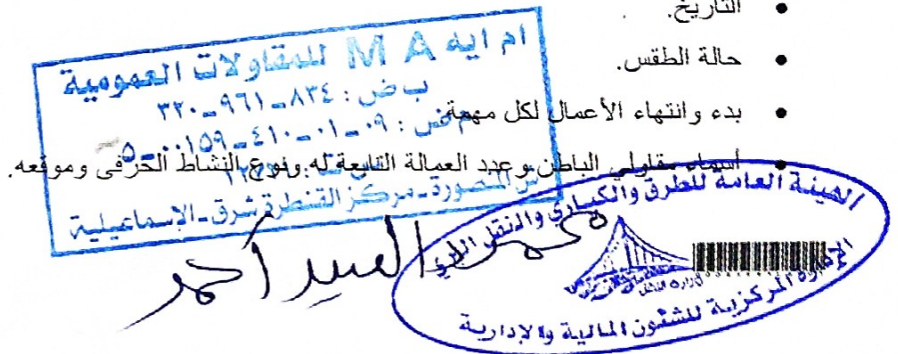 التاريخ.
حالة الطقس.
بدء وانتهاء الأعمال لكل مهمة.
أسماء مقاولي الباطن وعدد العمالة التابعة له ونوع النشاط الحرفى وموقعه.
ام ايه M A للمقاولات العمومية
ب ض : ٨٣٤-٩٦١-٣٢٠
م ض : ٠٩-٠١-٤١٠-٠٠١٥٩-٥
المنصورة - مركز القنطرة شرق - الإسماعيلية
السيد أحمد
الهيئة العامة للطرق والكباري والنقل البري
وزارة النقل
الإدارة المركزية للشئون المالية والإدارية